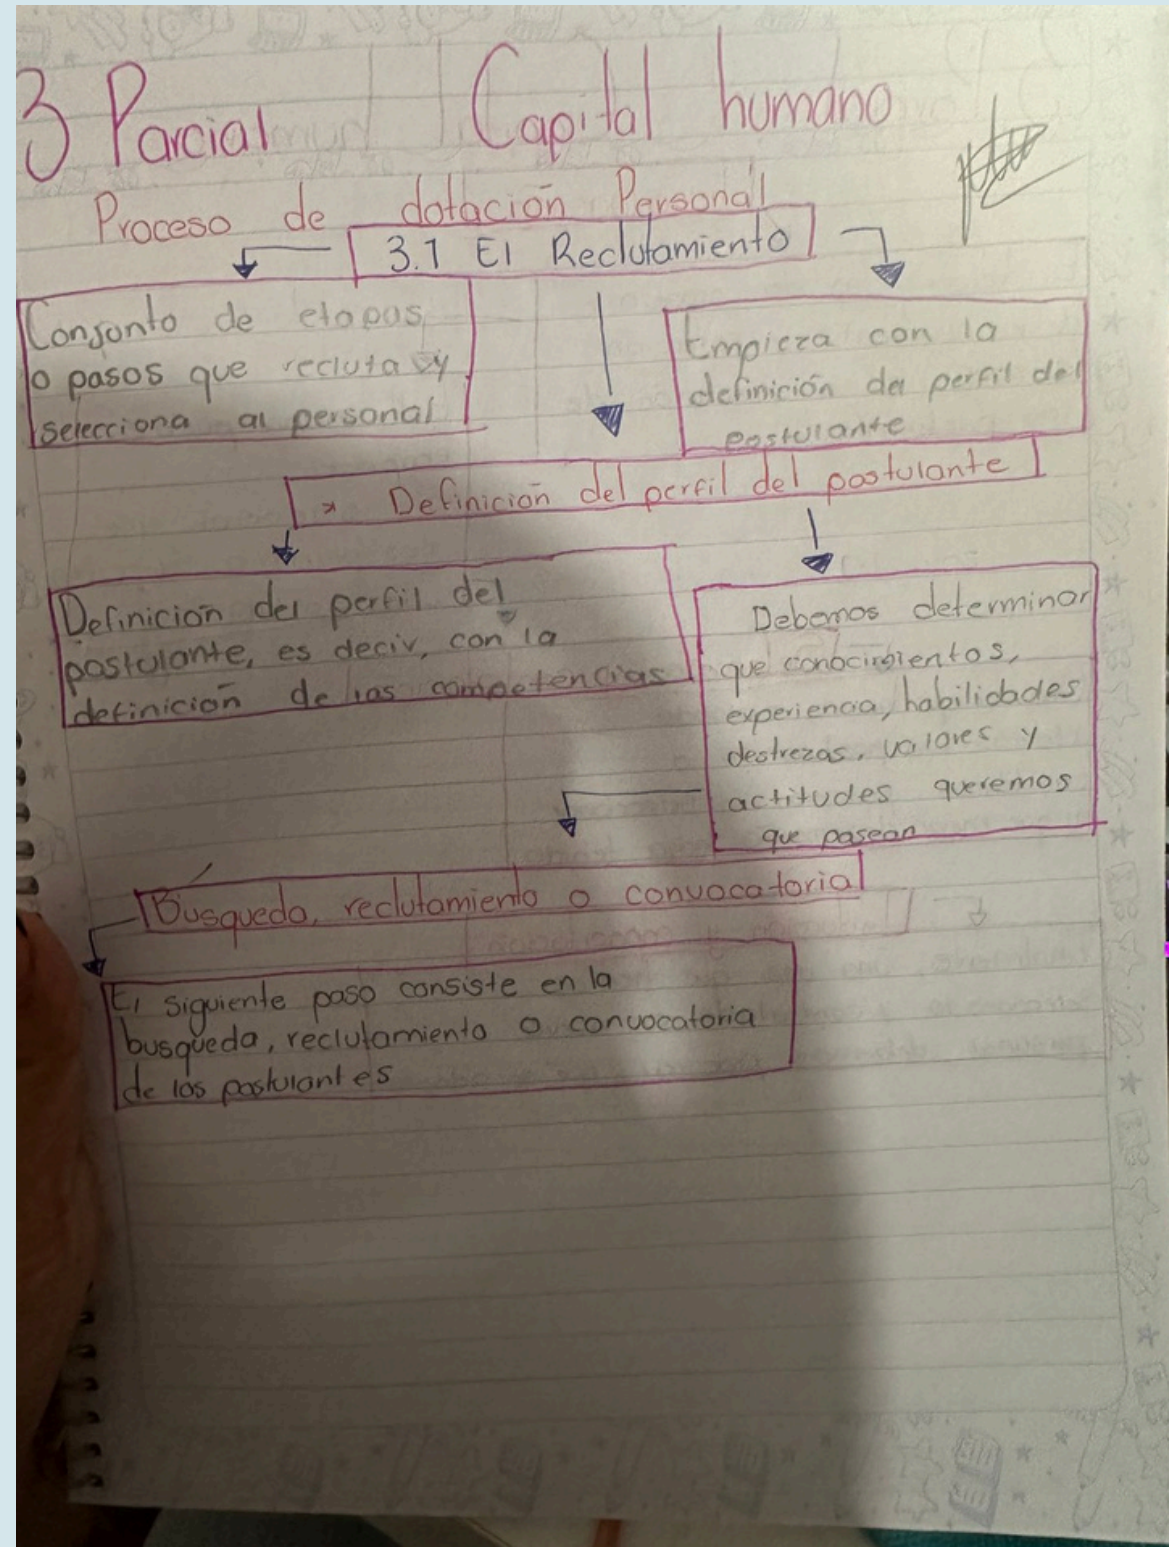 3 Parcial Capital humano
Proceso de dotación Personal
3.1 El Reclutamiento
Conjunto de etapas
o pasos que recluta y
selecciona al personal
Empieza con la
definición del perfil del
postulante
* Definición del perfil del postulante
Definición del perfil del
postulante, es decir, con la
definición de las competencias
Debemos determinar
que conocimientos,
experiencia, habilidades
destrezas, valores y
actitudes queremos
que posean
Búsqueda, reclutamiento o convocatoria
El siguiente paso consiste en la
busqueda, reclutamiento o convocatoria
de los postulantes